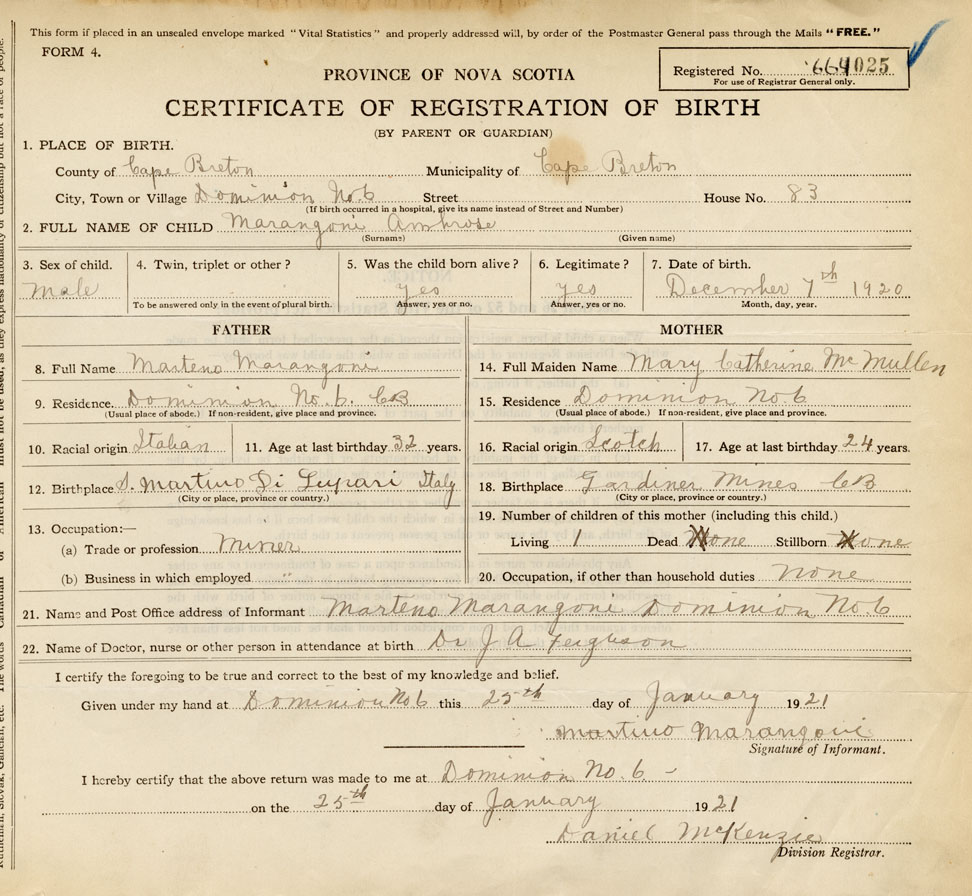 This form if placed in an unsealed envelope marked "Vital Statistics" and properly addressed will, by order of the Postmaster General pass through the Mails "FREE."
FORM 4.
Registered No. 664025
For use of Registrar General only.
PROVINCE OF NOVA SCOTIA
CERTIFICATE OF REGISTRATION OF BIRTH
(BY PARENT OR GUARDIAN)
1. PLACE OF BIRTH.
County of Cape Breton Municipality of Cape Breton
City, Town or Village Dominion No. 6 Street House No. 83
(If birth occurred in a hospital, give its name instead of Street and Number)
2. FULL NAME OF CHILD Marangoni Ambrose
(Surname) (Given name)
3. Sex of child. 4. Twin, triplet or other? 5. Was the child born alive? 6. Legitimate? 7. Date of birth.
Male yes yes December 7th 1920
To be answered only in the event of plural birth. Answer, yes or no. Answer, yes or no. Month, day, year.
FATHER MOTHER
8. Full Name Marteno Marangoni 14. Full Maiden Name Mary Catherine McMullen
9. Residence. Dominion No. 6. CB 15. Residence Dominion No. 6
(Usual place of abode.) If non-resident, give place and province. (Usual place of abode.) If non-resident, give place and province.
10. Racial origin Italian 11. Age at last birthday 32 years. 16. Racial origin Scotch 17. Age at last birthday 24 years.
12. Birthplace S. Martino Di Lupari Italy 18. Birthplace Gardiner Mines CB
(City or place, province or country.) (City or place, province or country.)
13. Occupation:— 19. Number of children of this mother (including this child.)
(a) Trade or profession Miner Living 1 Dead None Stillborn None
(b) Business in which employed " 20. Occupation, if other than household duties None
21. Name and Post Office address of Informant Marteno Marangoni Dominion No. 6
22. Name of Doctor, nurse or other person in attendance at birth Dr J A Ferguson
I certify the foregoing to be true and correct to the best of my knowledge and belief.
Given under my hand at Dominion No 6 this 25th day of January 1921
Martino Marangoni
Signature of Informant.
I hereby certify that the above return was made to me at Dominion No. 6 -
on the 25th day of January 1921
Daniel McKenzie
Division Registrar.